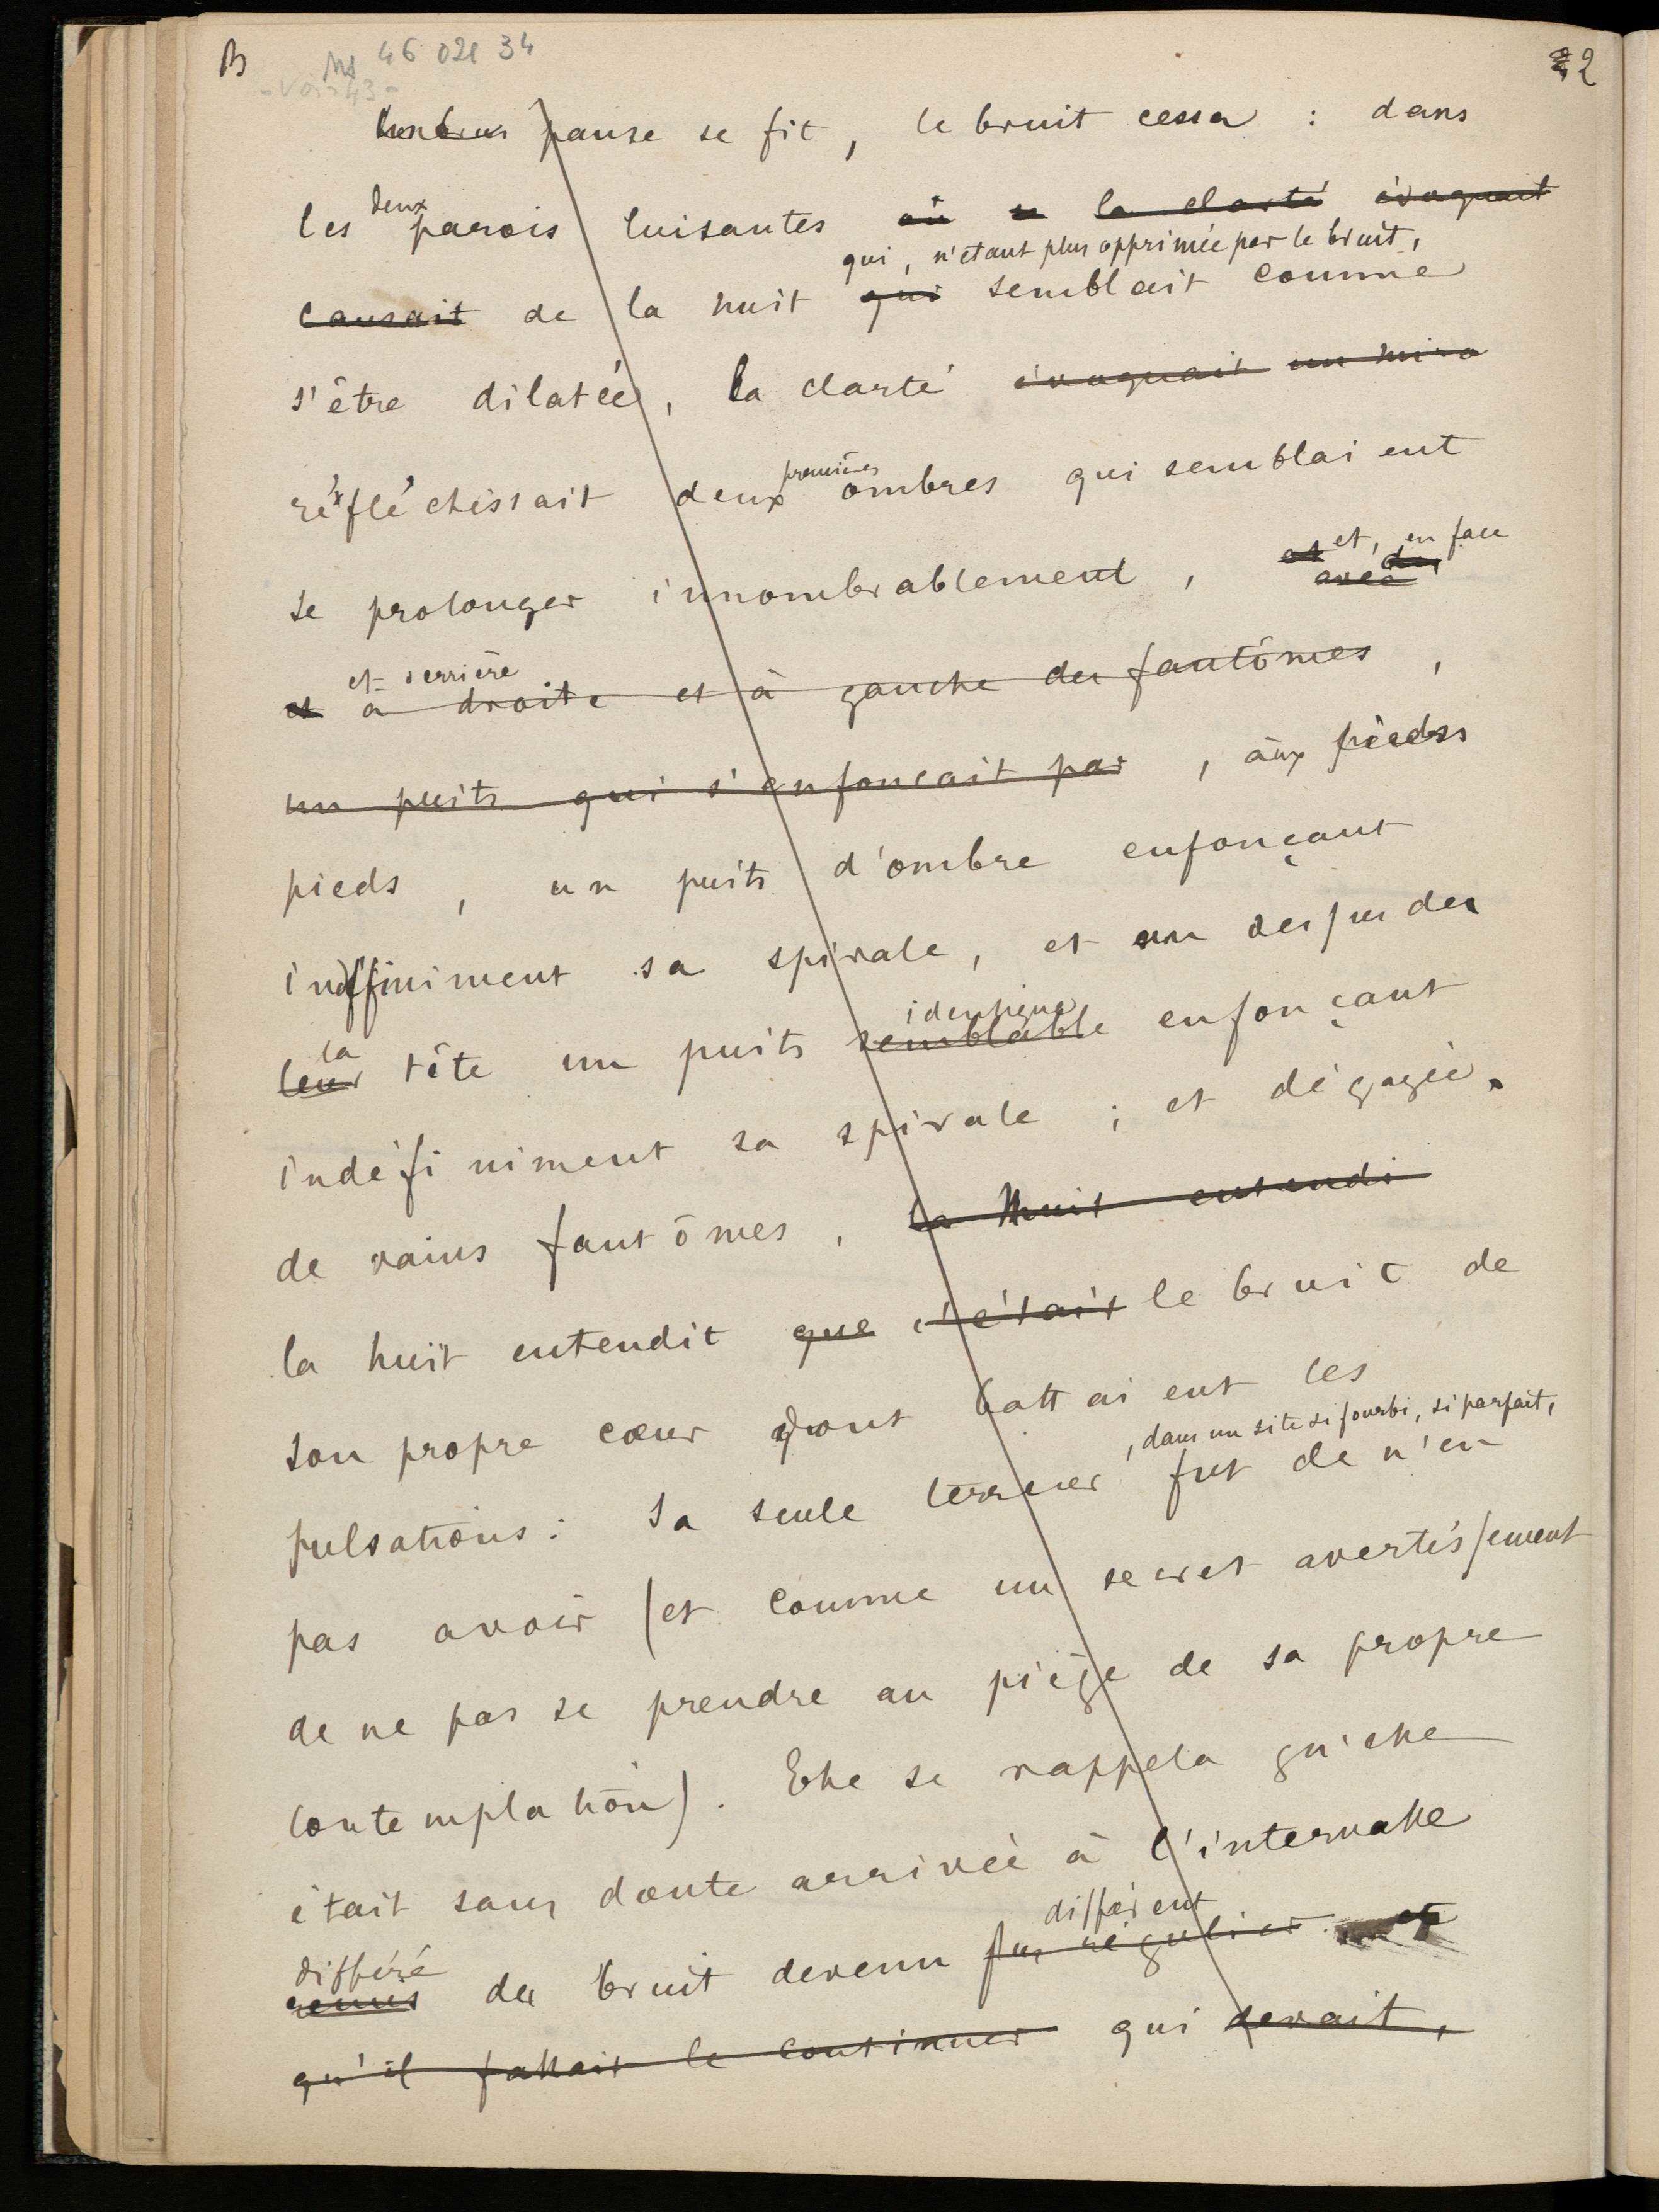 B
Ms 46 021 34
- Voir 43 -
22
pause se fit, le bruit cessa : dans
deux
les parois luisantes où se la clarté évoquait
qui, n'étant plus opprimée par le bruit,
causait de la nuit qui semblait comme
s'être dilatée, la clarté évoquait un mira
premières
réfléchissait deux ombres qui semblaient
et, en face
se prolonger innombrablement, et avec des
et derrière
et à droite et à gauche des fantômes,
un puits qui s'enfonçait par, aux pieds
pieds, un puits d'ombre enfonçant
indéfiniment sa spirale, et au dessus de
la identique
leur tête un puits semblable enfonçant
indéfiniment sa spirale ; et dégagée.
de vains fantômes, la Nuit entendi
la nuit entendit que c'était le bruit de
son propre cœur dont battaient les
, dans un site si fourbi, si parfait,
pulsations : sa seule terreur fut de n'en
pas avoir (et comme un secret avertissement
de ne pas se prendre au piège de sa propre
contemplation). Elle se rappela qu'elle
était sans doute arrivée à l'intervalle
différent
différé
du bruit devenu plus régulier et
qu'il fallait le continuer qui devait,